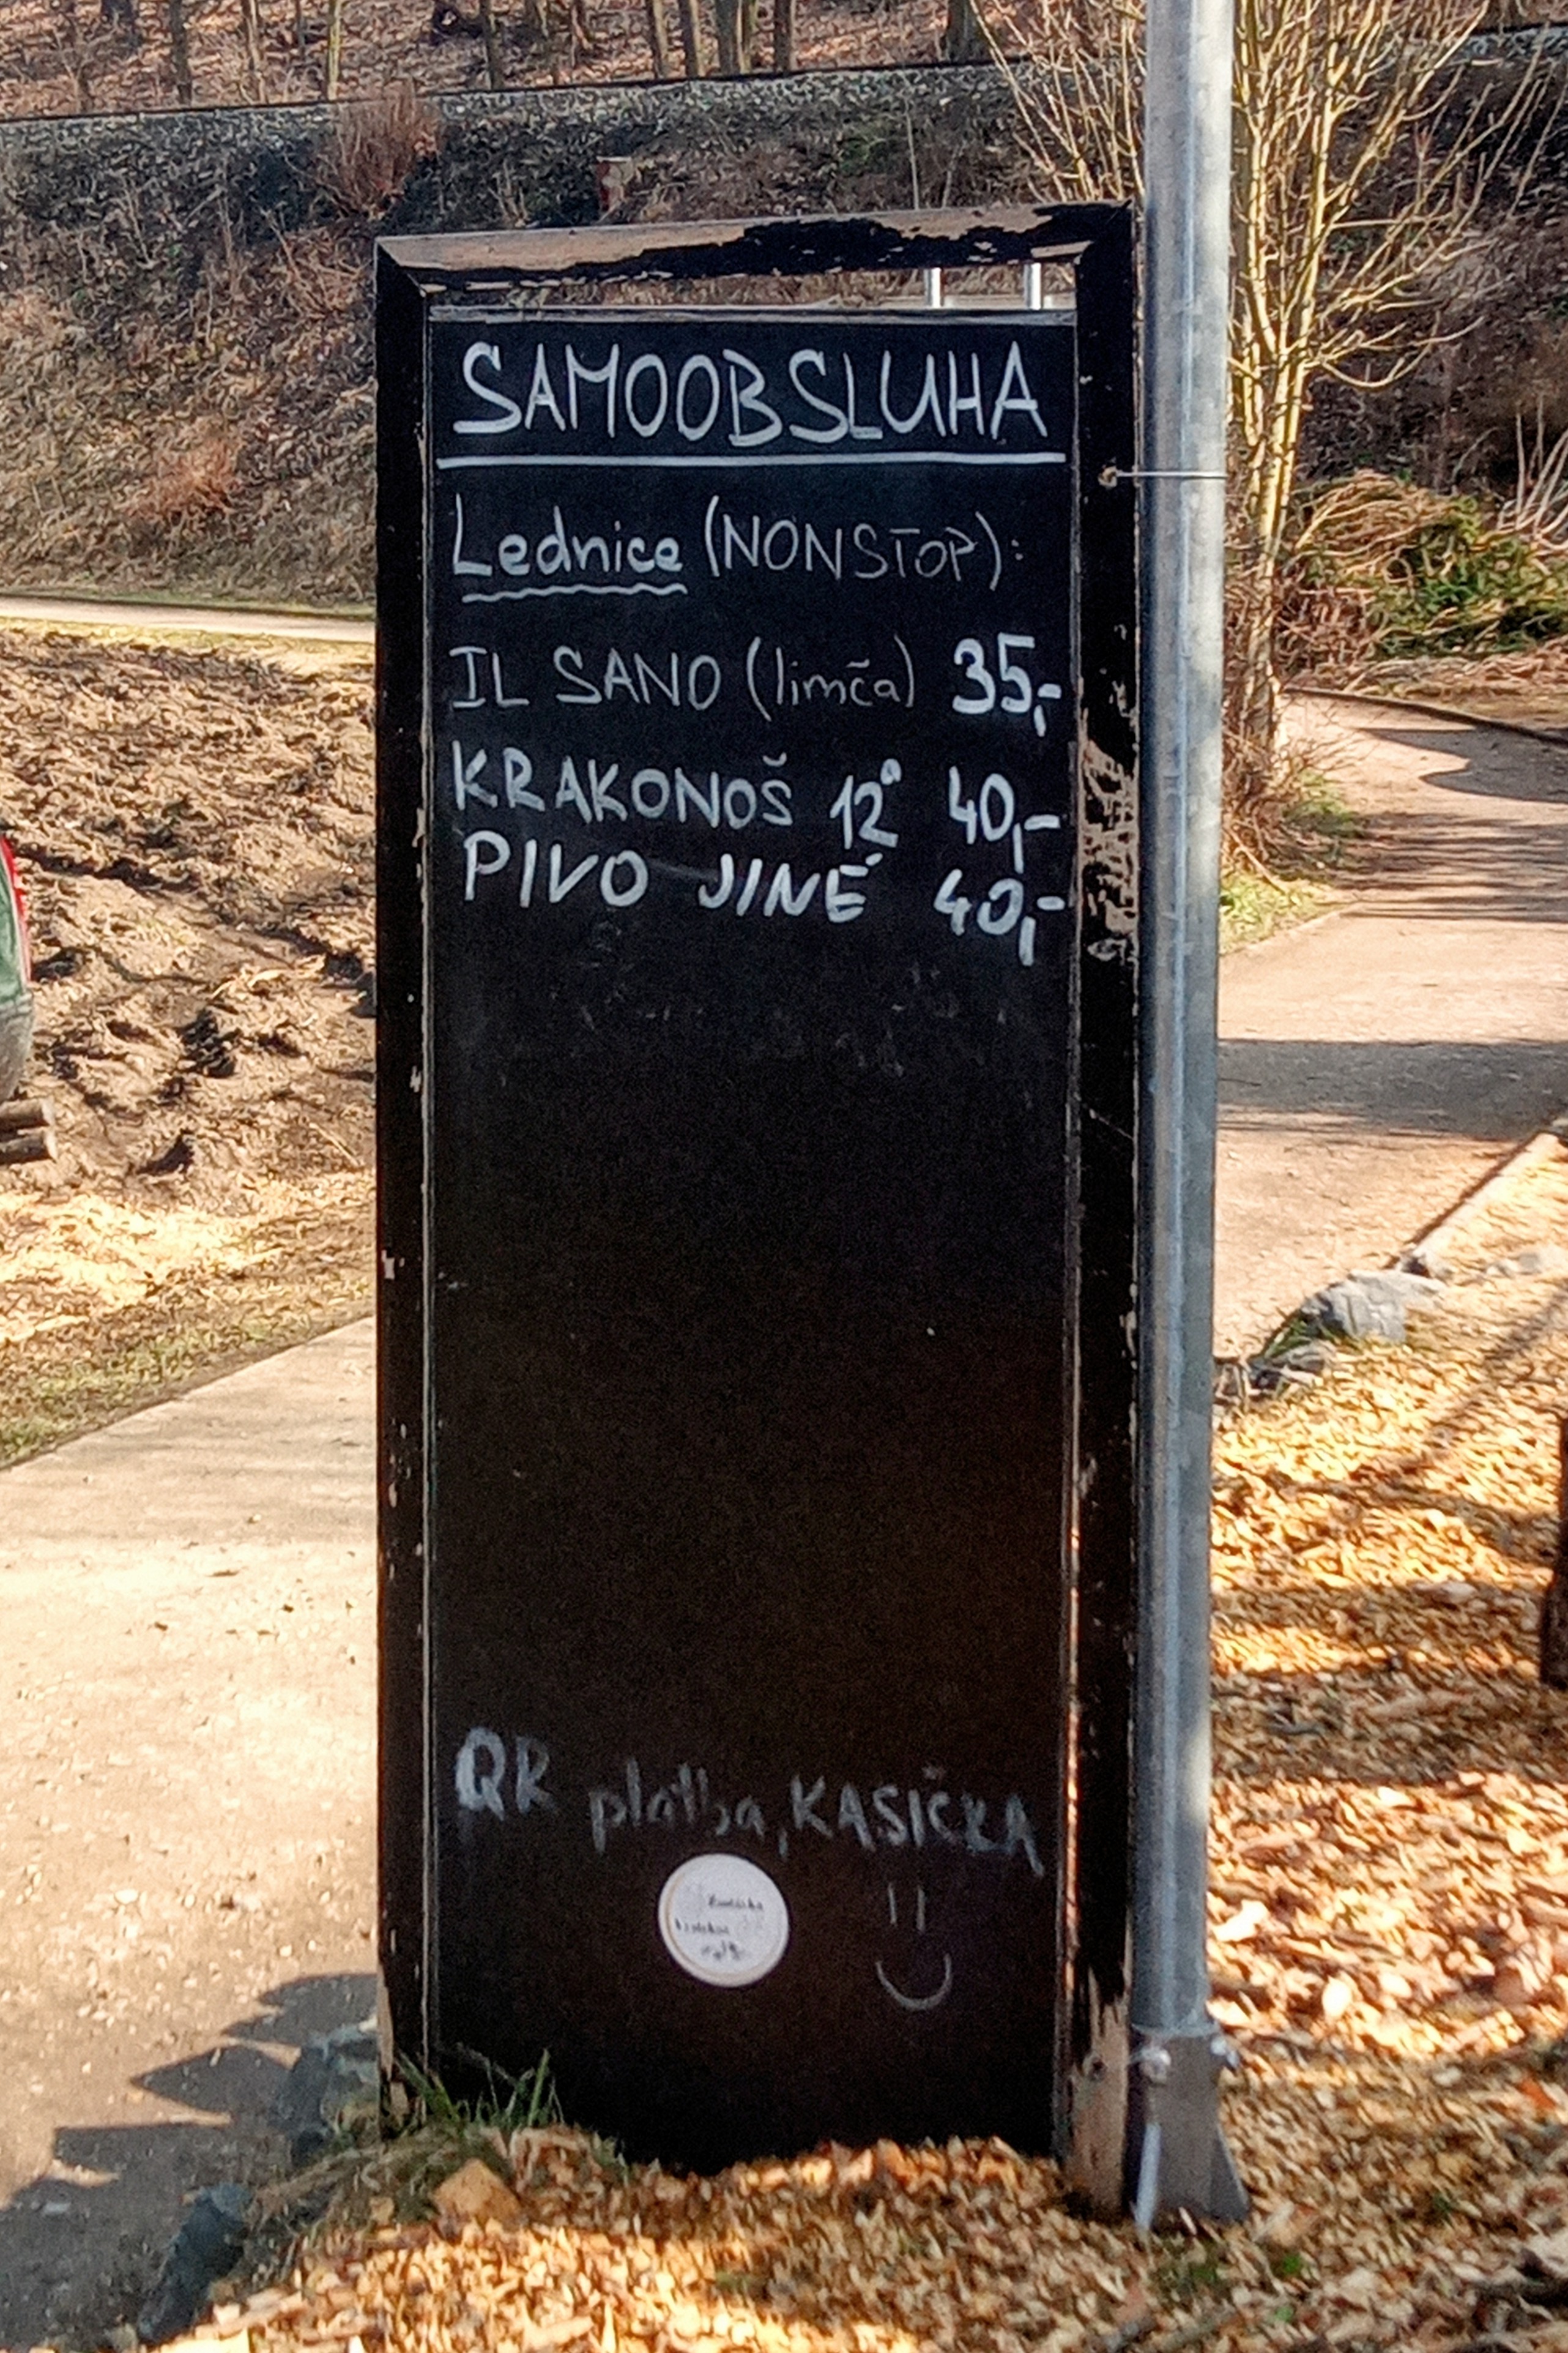 SAMOOBSLUHA
Lednice (NONSTOP):
IL SANO (limča) 35,-
KRAKONOŠ 12° 40,-
PIVO JINÉ 40,-
QR platba, KASIČKA